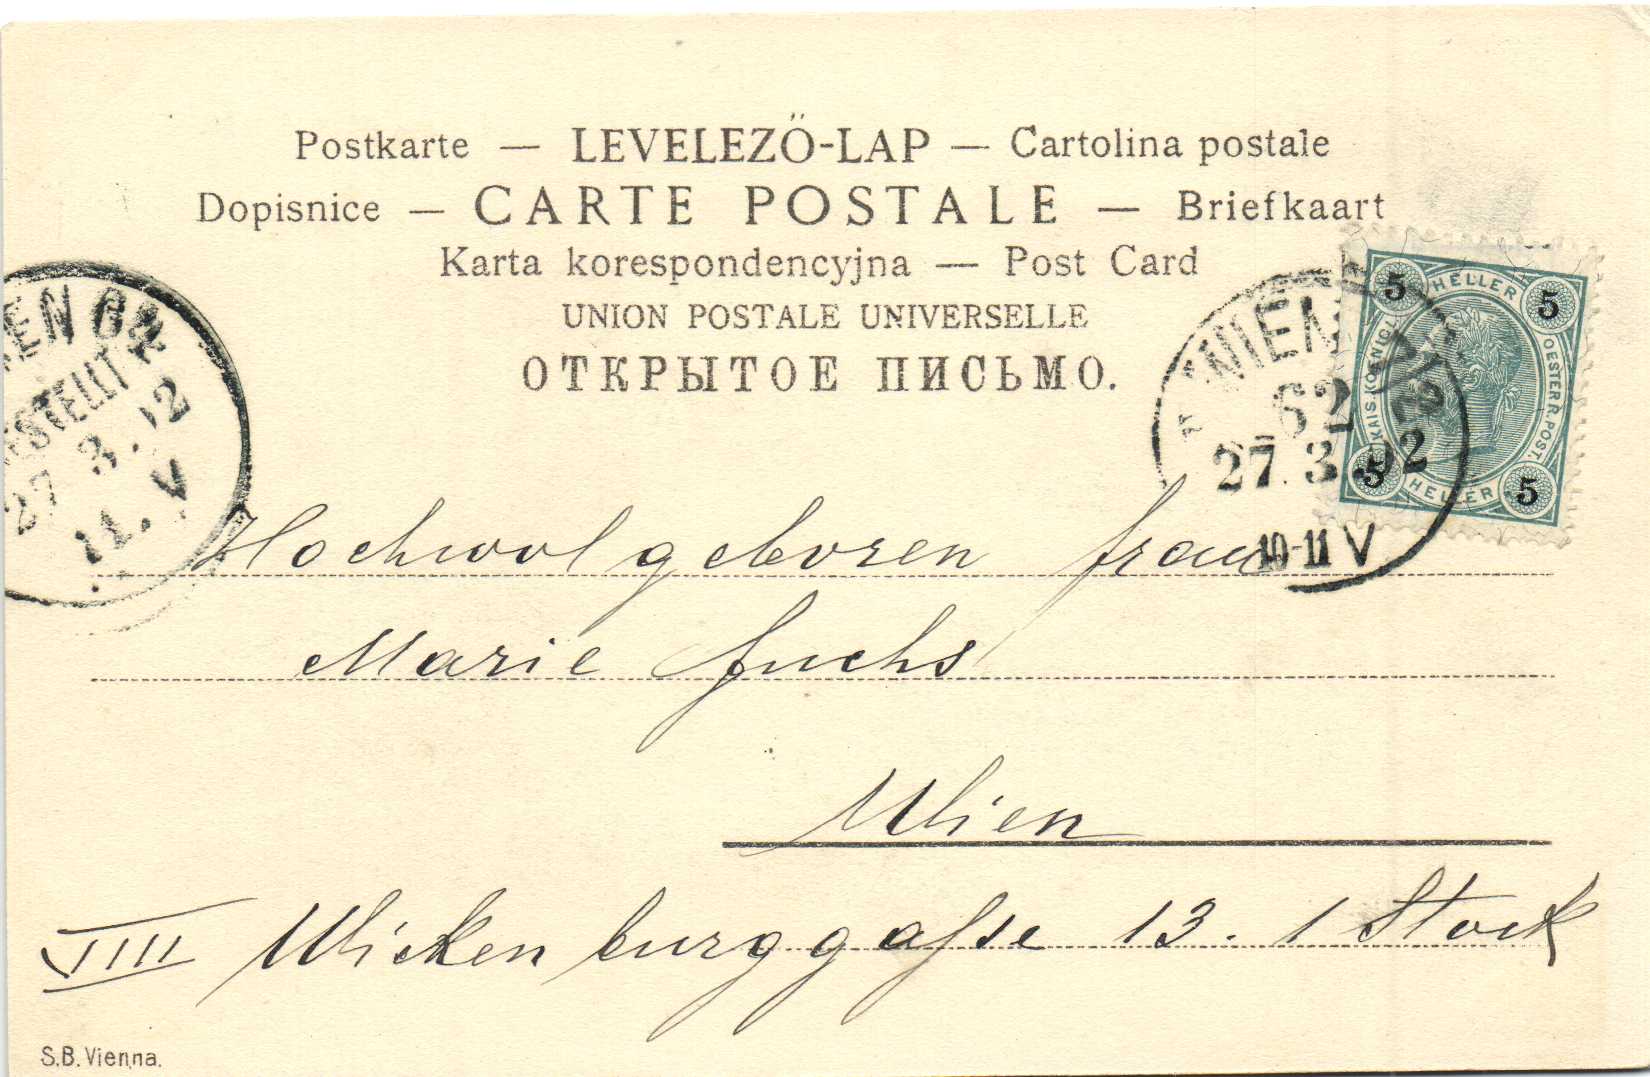 Postkarte — LEVELEZŐ-LAP — Cartolina postale
Dopisnice — CARTE POSTALE — Briefkaart
Karta korespondencyjna — Post Card
UNION POSTALE UNIVERSELLE
ОТКРЫТОЕ ПИСЬМО.
BESTELLT
27 3.02
11. V
WIEN
62
27.3.02
10-11 V
5 HELLER 5
KAIS. KOENIGL. OESTERR. POST.
5 HELLER 5
Hochwolgeboren frau
Marie Fuchs
Wien
VIII Wickenburggasse 13. 1 Stock
S.B. Vienna.